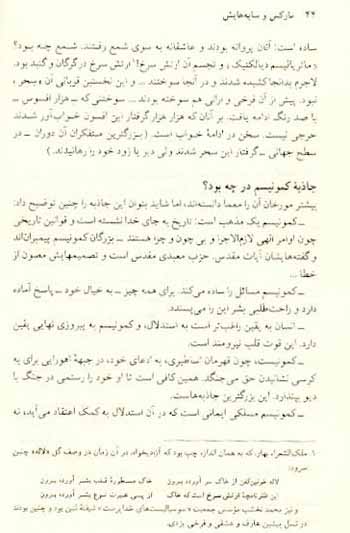 ۴۴ / مارکس و سایه‌هایش
ساده است: آنان پروانه بودند و عاشقانه به سوی شمع رفتند. شمع چه بود؟
«ماتریالیسم دیالکتیک»، و تجسم آن ارتش سرخ! ارتش سرخ در گرگان و گنبد بود.
لاجرم بدانجا کشیده شدند و در آنجا سوختند ... و این نخستین قربانی آن «سحر»
نبود. پیش از آن فرخی و ارانی هم سوخته بودند ... سوختنی که ــ هزار افسوس ــ
با صد رنگ ادامه یافت. بر آنان که هزار هزار گرفتار این افسون خواب‌آور شدند
حرجی نیست. سخن در ادامهٔ خواب است. (بزرگترین متفکران آن دوران ــ در
سطح جهانی ــ گرفتار این سحر شدند ولی دیر یا زود خود را رهانیدند.)
جاذبهٔ کمونیسم در چه بود؟
بیشتر مورخان آن را معما دانسته‌اند، اما شاید بتوان این جاذبه را چنین توضیح داد:
ــ کمونیسم یک مذهب است: تاریخ به جای خدا نشسته است و قوانین تاریخی
چون اوامر الهی لازم‌الاجرا و بی چون و چرا هستند ــ بزرگان کمونیسم پیمبران‌اند
و گفته‌هایشان آیات مقدس. حزب معبدی مقدس است و تصمیمهایش مصون از
خطا ...
ــ کمونیسم مسائل را ساده می‌کند. برای همه چیز ــ به خیال خود ــ پاسخ آماده
دارد و راحت‌طلبی بشر این را می‌پسندد.
ــ انسان به یقین راغب‌تر است به استدلال، و کمونیسم به پیروزی نهایی یقین
دارد. این قوت قلب نیرومند است.
ــ کمونیست، چون قهرمان اساطیری، به ادعای خود، در جبههٔ اهورایی برای به
کرسی نشانیدن حق می‌جنگد. همین کافی است تا او خود را رستمی در جنگ با
دیو بپندارد. این بزرگترین جاذبه‌هاست.
ــ کمونیسم مسلکی ایمانی است که در آن استدلال به کمک اعتقاد می‌آید، نه
۱. ملک‌الشعراء بهار، که به همان اندازه چپ بود که آزادیخواه، در آن زمان در وصف گل «لاله» چنین
سرود:
لاله خونین‌کفن از خاک سر آورده بیرون
خاک مستورهٔ قلب بشر آورده بیرون
این ظفرنامچهٔ ارتش سرخ است که خاک
از پی عبرت نوع بشر آورده بیرون
و نیز محمد نخشب مؤسس جمعیت «سوسیالیست‌های خداپرست» شیفتهٔ لنین بود و چنین بودند
در نسل پیشین عارف و عشقی و فرخی یزدی.